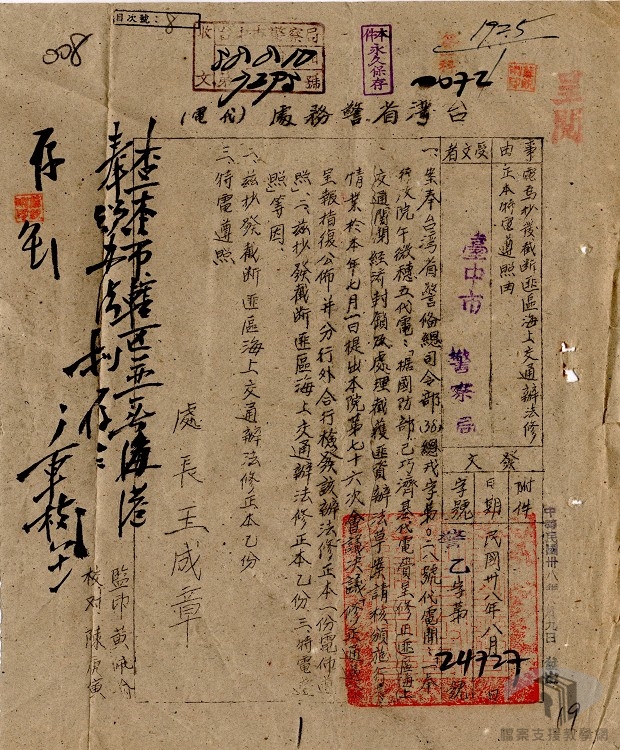 目次號：8
008
收台中市警察局
38.8.10
文 第7295號
本件永久保存
1935
呈閱
台灣省警務處（代電）
事由
電為抄發截斷匪區海上交通辦法修正本特電遵照由
受文者
臺中市警察局
發文
附件
日期 民國卅八年八月 日
字號 警乙字第24727號
中華民國卅八年 月九日
一、案奉台灣省警備總司令部(36)總戎字第〇二八號代電開：「一、奉
行政院午微穗五代電：「據國防部已巧濟基代電賫呈修正匪區海上
交通關閉經濟封鎖及處理截獲匪資辦法草案請核頒施行
情業於本年七月一日提出本院第七十六次會議決議修正通過
呈報指復公佈并分行外合行檢發該辦法修正本一份電仰遵
照二、茲抄發截斷匪區海上交通辦法修正本乙份三、特電遵
照等因
二、茲抄發截斷匪區海上交通辦法修正本乙份
三、特電遵照
處長王成章
監印 黃
校對 陳
查本市轄區並無海港
奉
存
1
19
檔案支援教學網